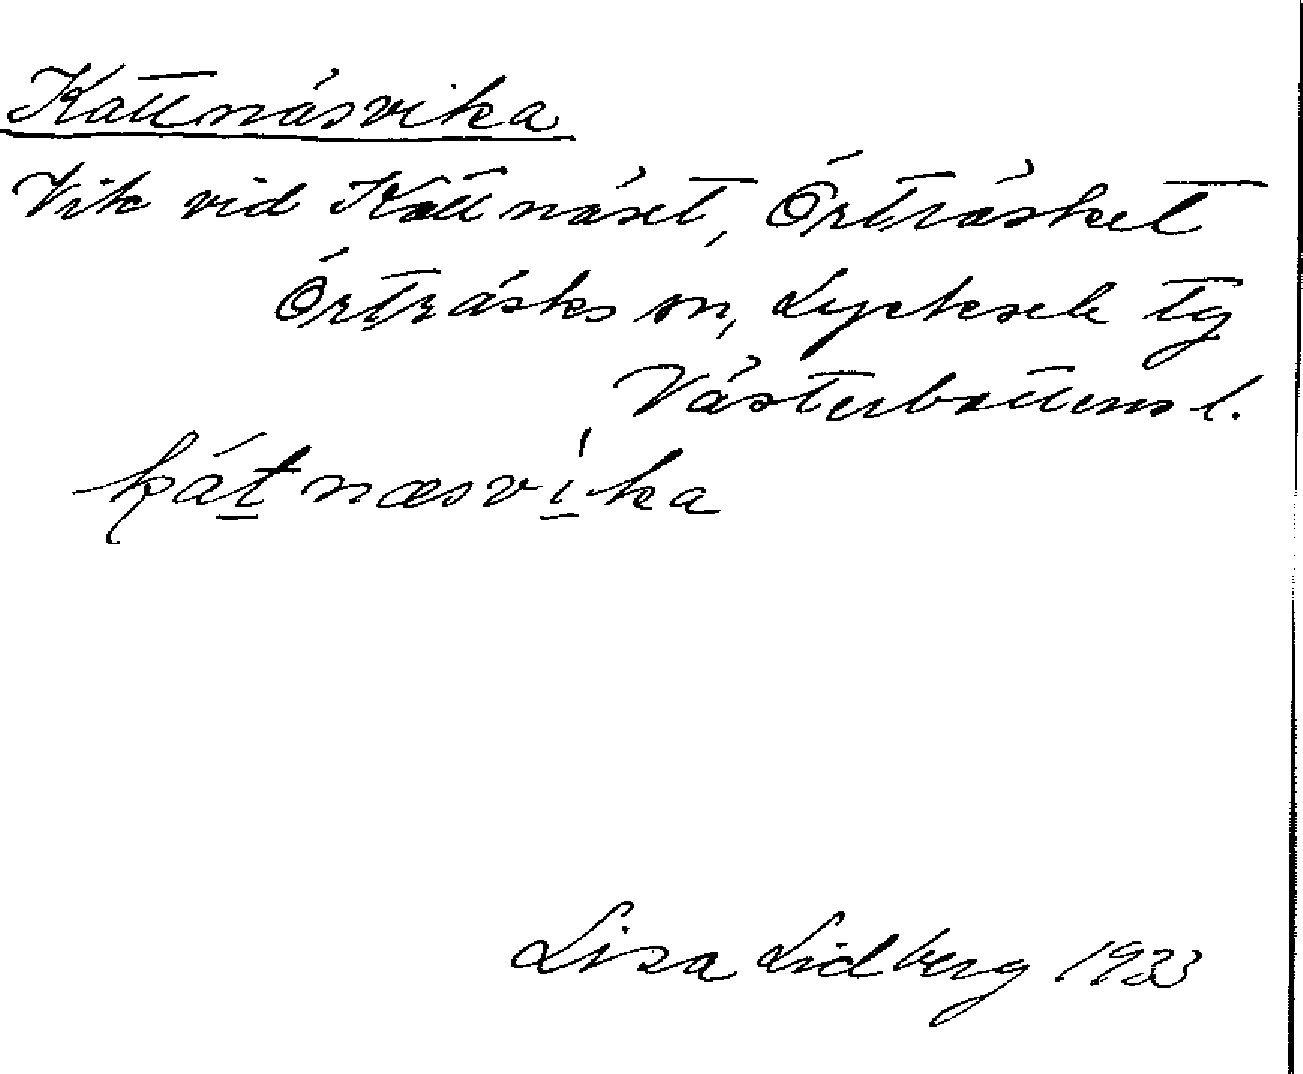 Kattnäsvika
Vik vid Kattnäset, Örträsket
Örträsks sn, Lycksele tg
Västerbottens l.
kát næsvika
Lisa Lidberg 1933